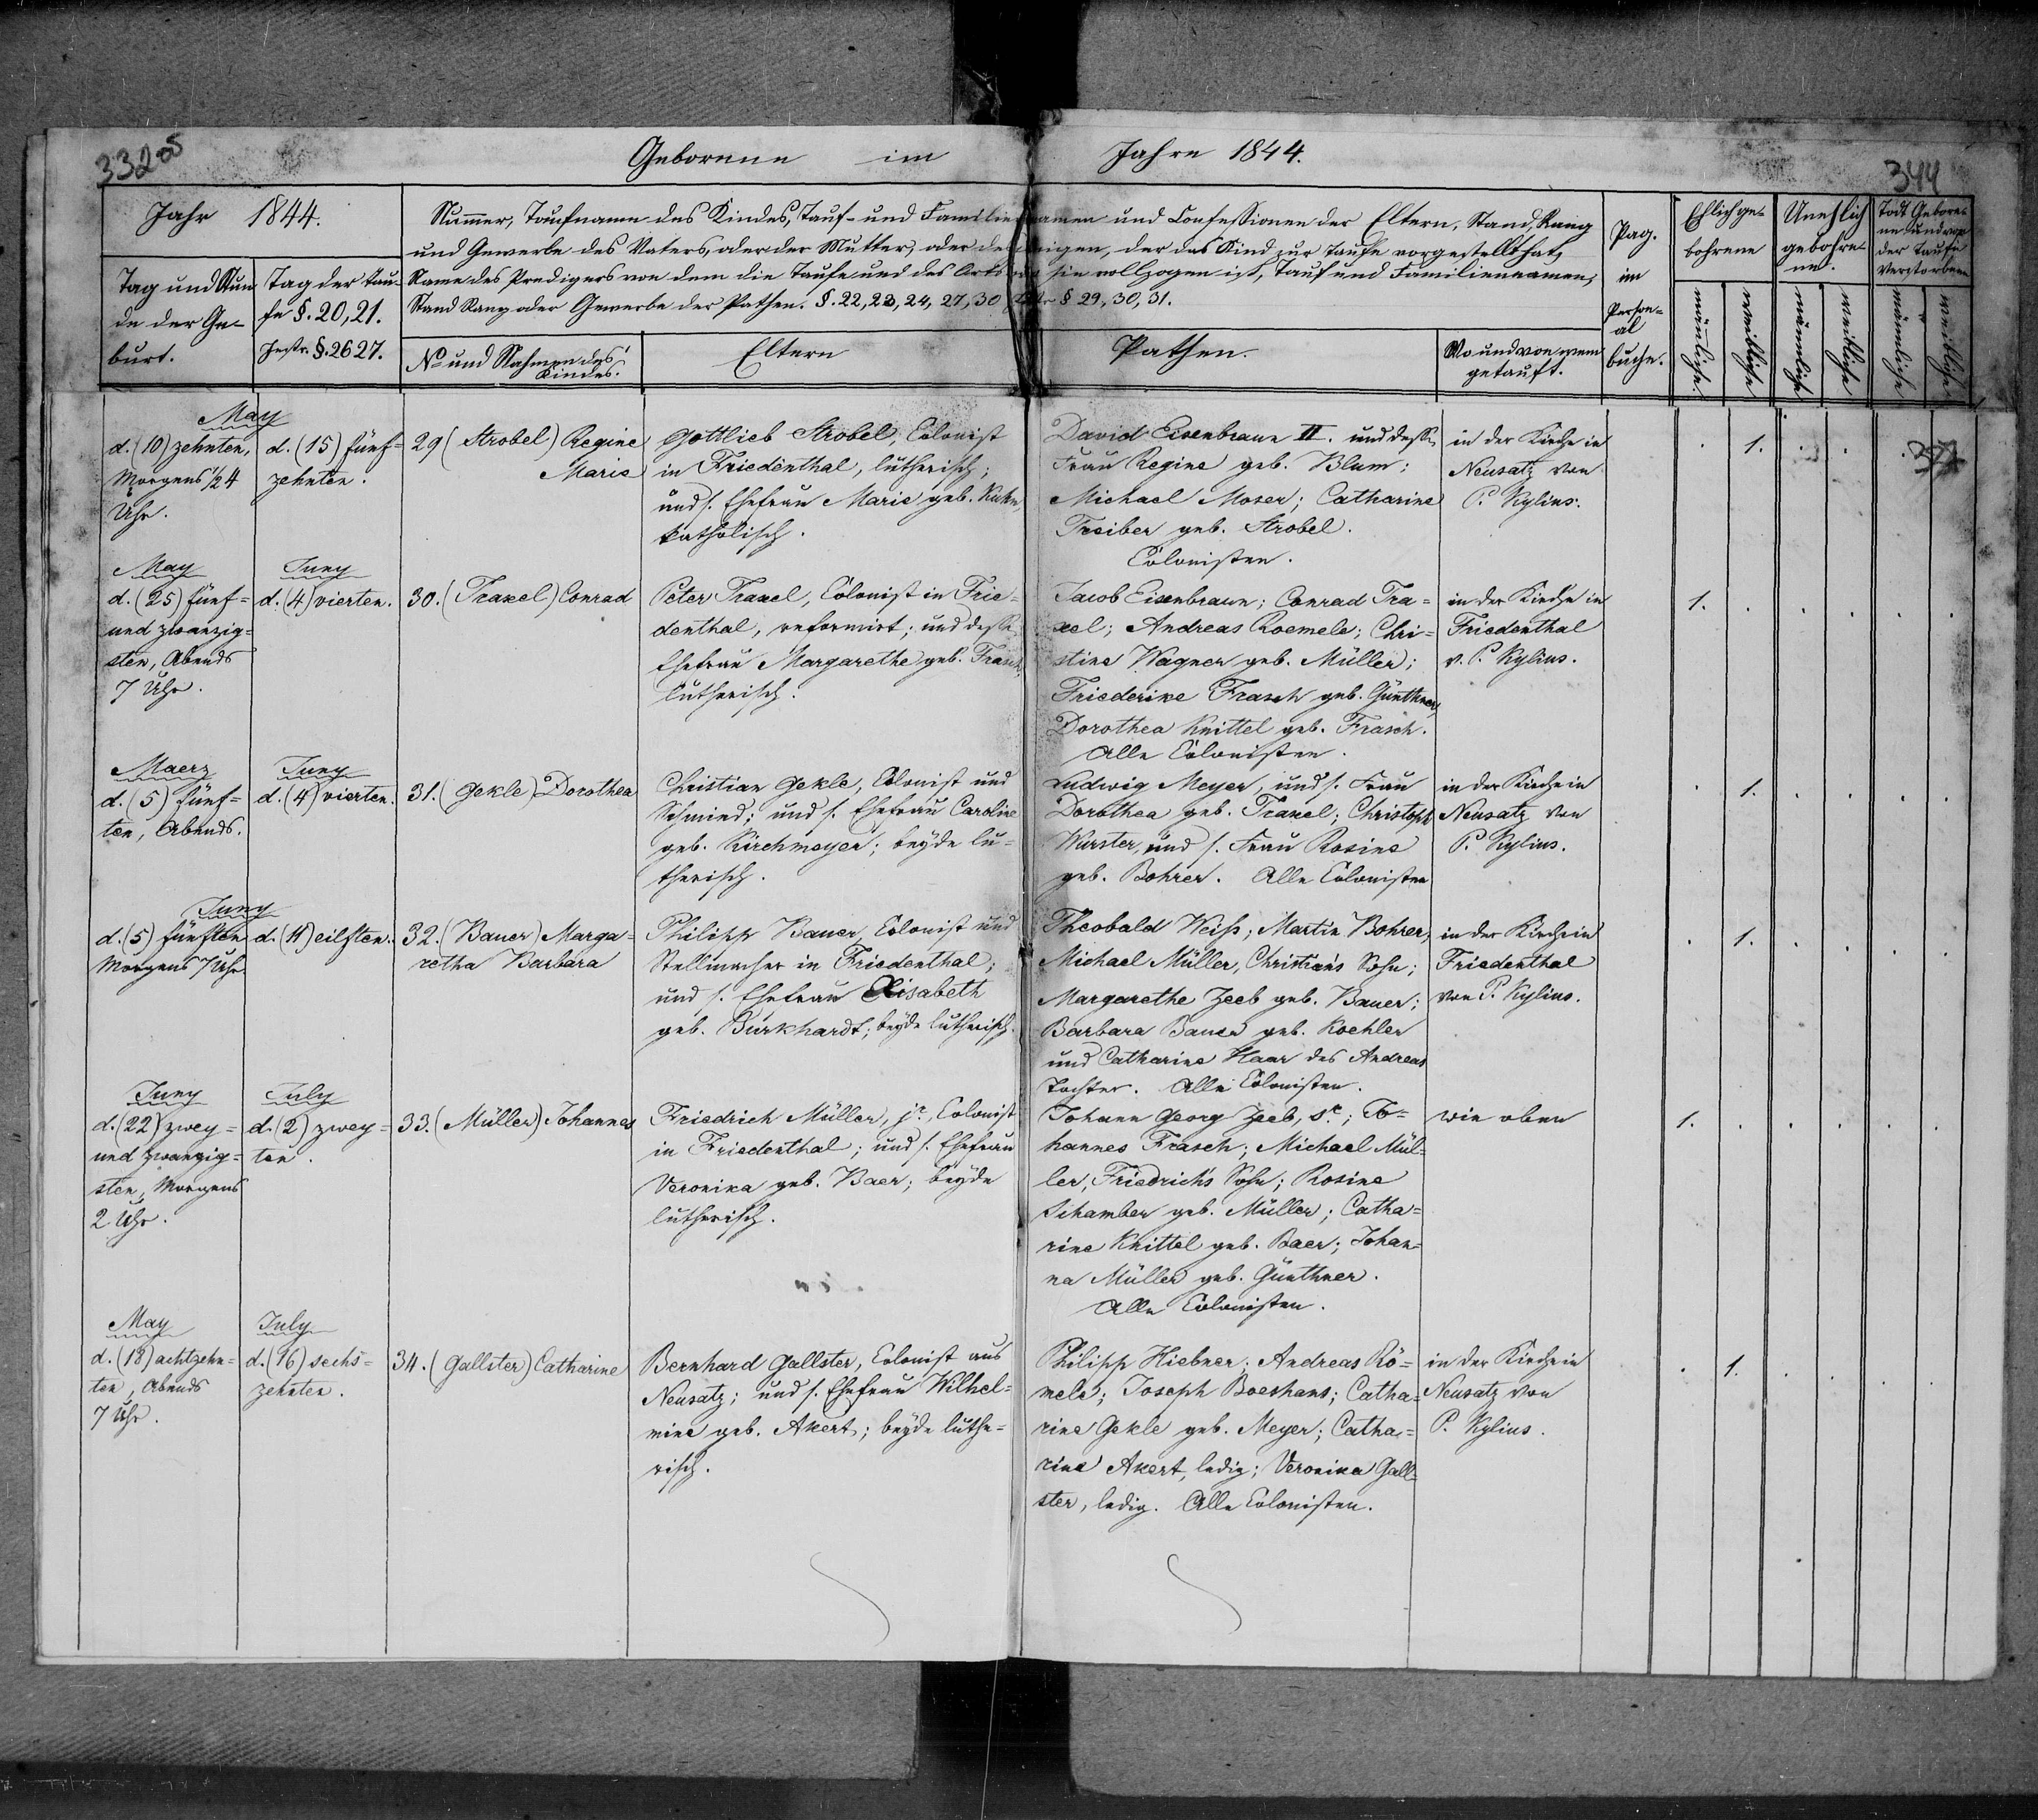 Geborene im Jahre 1844.
344
Jahr 1844.
Tag und Stun
de der Ge-
burt.
Tag der Tau-
fe §. 20, 21.
Instr. §. 26 27.
Numer, Taufname des Kindes, Tauf- und Familiennamen und Confessionen der Eltern, Stand, Rang
und Gewerbe des Vaters, oder der Mutter, oder desjenigen, der das Kind zur Taufe vorgestellt hat,
Name des Predigers von dem die Taufe und des Orts wo sie vollzogen ist, Tauf und Familiennamen,
Stand Rang oder Gewerbe der Pathen. §. 22, 23, 24, 27, 30 Instr § 29, 30, 31.
No und Nahmen des
Kindes.
Eltern
Pathen.
Wo und von wem
getauft.
Pag.
im
Person=
al
buche.
Ehlich ge-
bohrene
Unehlich
gebohre
ne.
Todt Gebore-
ne und vor
der Taufe
Verstorbene
männliche
weibliche
männliche
weibliche
männliche
weibliche
May
d. (10) zehnten,
Morgens 1/2 4
Uhr.
d. (15) fünf=
zehnten.
29 (Strobel) Regine
Marie
Gottlieb Strobel, Colonist
in Friedenthal, lutherisch;
und s. Ehefrau Marie geb. Kuhn,
katholisch.
David Eisenbraun II. und dessen
Frau Regine geb. Blum;
Michael Moser; Catharine
Treiber geb. Strobel.
Colonisten.
in der Kirche in
Neusatz von
P. Kylius.
1.
May
d. (25) fünf=
und zwanzig=
sten, Abends
7 Uhr.
Juny
d. (4) vierten.
30. (Traxel) Conrad
Peter Traxel, Colonist in Frie=
denthal, reformirt; und dessen
Ehefrau Margarethe geb. Frasch,
lutherisch.
Jacob Eisenbraun; Conrad Tra=
xel; Andreas Roemele; Chri=
stine Wagner geb. Müller;
Friederike Frasch geb. Günthner,
Dorothea Knittel geb. Frasch.
Alle Colonisten.
in der Kirche in
Friedenthal
v. P. Kylius.
1.
Maerz
d. (5) fünf=
ten, Abends.
Juny
d. (4) vierten.
31. (Gekle) Dorothea
Christian Gekle, Colonist und
Schmied; und s. Ehefrau Caroline
geb. Kirchmeyer; beyde lu=
therisch.
Ludwig Meyer, und s. Frau
Dorothea geb. Traxel; Christoph
Wurster, und s. Frau Rosine
geb. Bohrer. Alle Colonisten
in der Kirche in
Neusatz von
P. Kylius.
1.
Juny
d. (5) fünften
Morgens 7 Uhr
d. (11) eilften.
32. (Bauer) Marga=
retha Barbara
Philipp Bauer, Colonist und
Stellmacher in Friedenthal;
und s. Ehefrau Elisabeth
geb. Burkhardt; beyde lutherisch.
Theobald Weiß; Martin Bohrer,
Michael Müller, Christian's Sohn;
Margarethe Zeeb geb. Bauer;
Barbara Bauer geb. Koehler
und Catharine Haar des Andreas
Tochter. Alle Colonisten.
in der Kirche in
Friedenthal
von P. Kylius.
1.
Juny
d. (22) zwey=
und zwanzig=
sten, Morgens
2 Uhr.
July
d. (2) zwey=
ten.
33. (Müller) Johannes
Friedrich Müller, jr., Colonist
in Friedenthal; und s. Ehefrau
Veronika geb. Baer; beyde
lutherisch.
Johann Georg Zeeb, sr.; Jo=
hannes Frasch; Michael Mül=
ler, Friedrich's Sohn; Rosine
Schamber geb. Müller; Catha=
rine Knittel geb. Baer; Johan=
na Müller geb. Günthner.
Alle Colonisten.
wie oben
1.
May
d. (18) achtzehn=
ten, Abends
7 Uhr.
July
d. (16) sechs=
zehnten.
34. (Gallster) Catharine
Bernhard Gallster, Colonist aus
Neusatz; und s. Ehefrau Wilhel=
mine geb. Akert; beyde luthe=
risch.
Philipp Hiebner; Andreas Rö=
mele; Joseph Boeshans; Catha=
rine Gekle geb. Meyer; Catha=
rine Akert, ledig; Veronika Gall=
ster, ledig. Alle Colonisten.
in der Kirche in
Neusatz von
P. Kylius.
1.